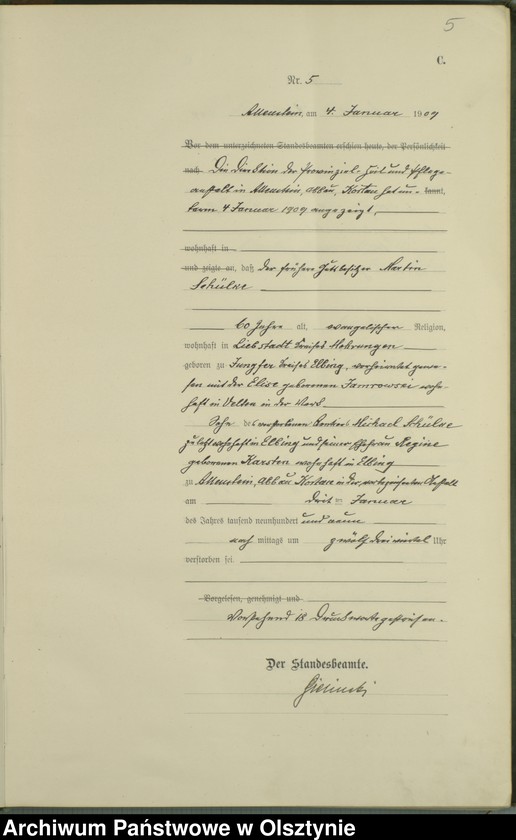 5
C.
Nr. 5
Allenstein, am 4. Januar 1909
Vor dem unterzeichneten Standesbeamten erschien heute, der Persönlichkeit
nach Die Direktion der Provinzial-Heil und Pflege-
anstalt in Allenstein, Abbau Kortau hat un- kannt,
term 4 Januar 1909 angezeigt,
wohnhaft in
und zeigte an, daß der frühere Gutsbesitzer Martin
Schülke
60 Jahre alt, evangelischer Religion,
wohnhaft in Liebstadt Kreises Mohrungen
geboren zu Jungfer Kreises Elbing, verheiratet gewe-
sen mit der Elise geborenen wohn-
haft in Velten in der Mark
Sohn des verstorbenen Rentiers Michael Schülke
zuletzt wohnhaft in Elbing und seiner Ehefrau Regine
geborenen Karsten wohnhaft in Elbing
zu Allenstein, Abbau Kortau in der vorbezeichneten Anstalt
am dritten Januar
des Jahres tausend neunhundert und neun
nach mittags um zwölf dreiviertel Uhr
verstorben sei.
Vorgelesen, genehmigt und
Vorstehend 18 Druckworte gestrichen.
Der Standesbeamte.
Archiwum Państwowe w Olsztynie